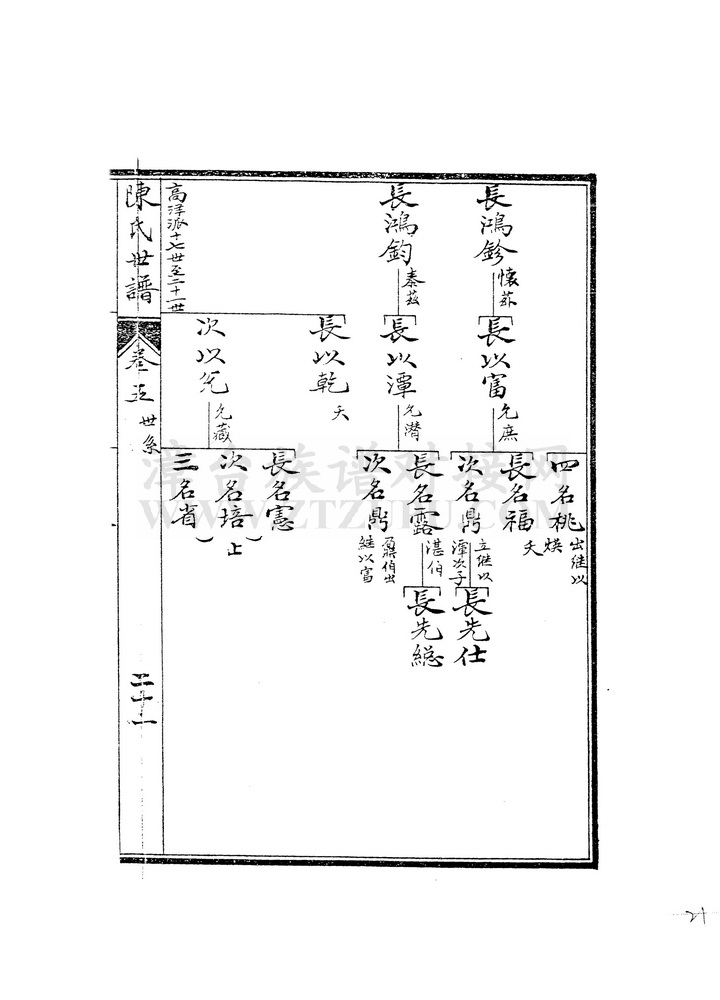 長鴻鉁
懷荪
長鴻鈞
秦茲
高洋派十七世至二十一世
長以富
允庶
長以潭
允潛
長以乾
夭
次以允
允藏
四名桃
出继以
煐
長名福
夭
次名鼎
立继以
潭次子
長名露
湛伯
次名鼎
鼐伯出
継以富
長名憲
次名培
止
三名省
長先仕
長先総
陳氏世譜
卷五
世系
二十一
漳台族谱对接网
WWW.ZTZUPU.COM
21